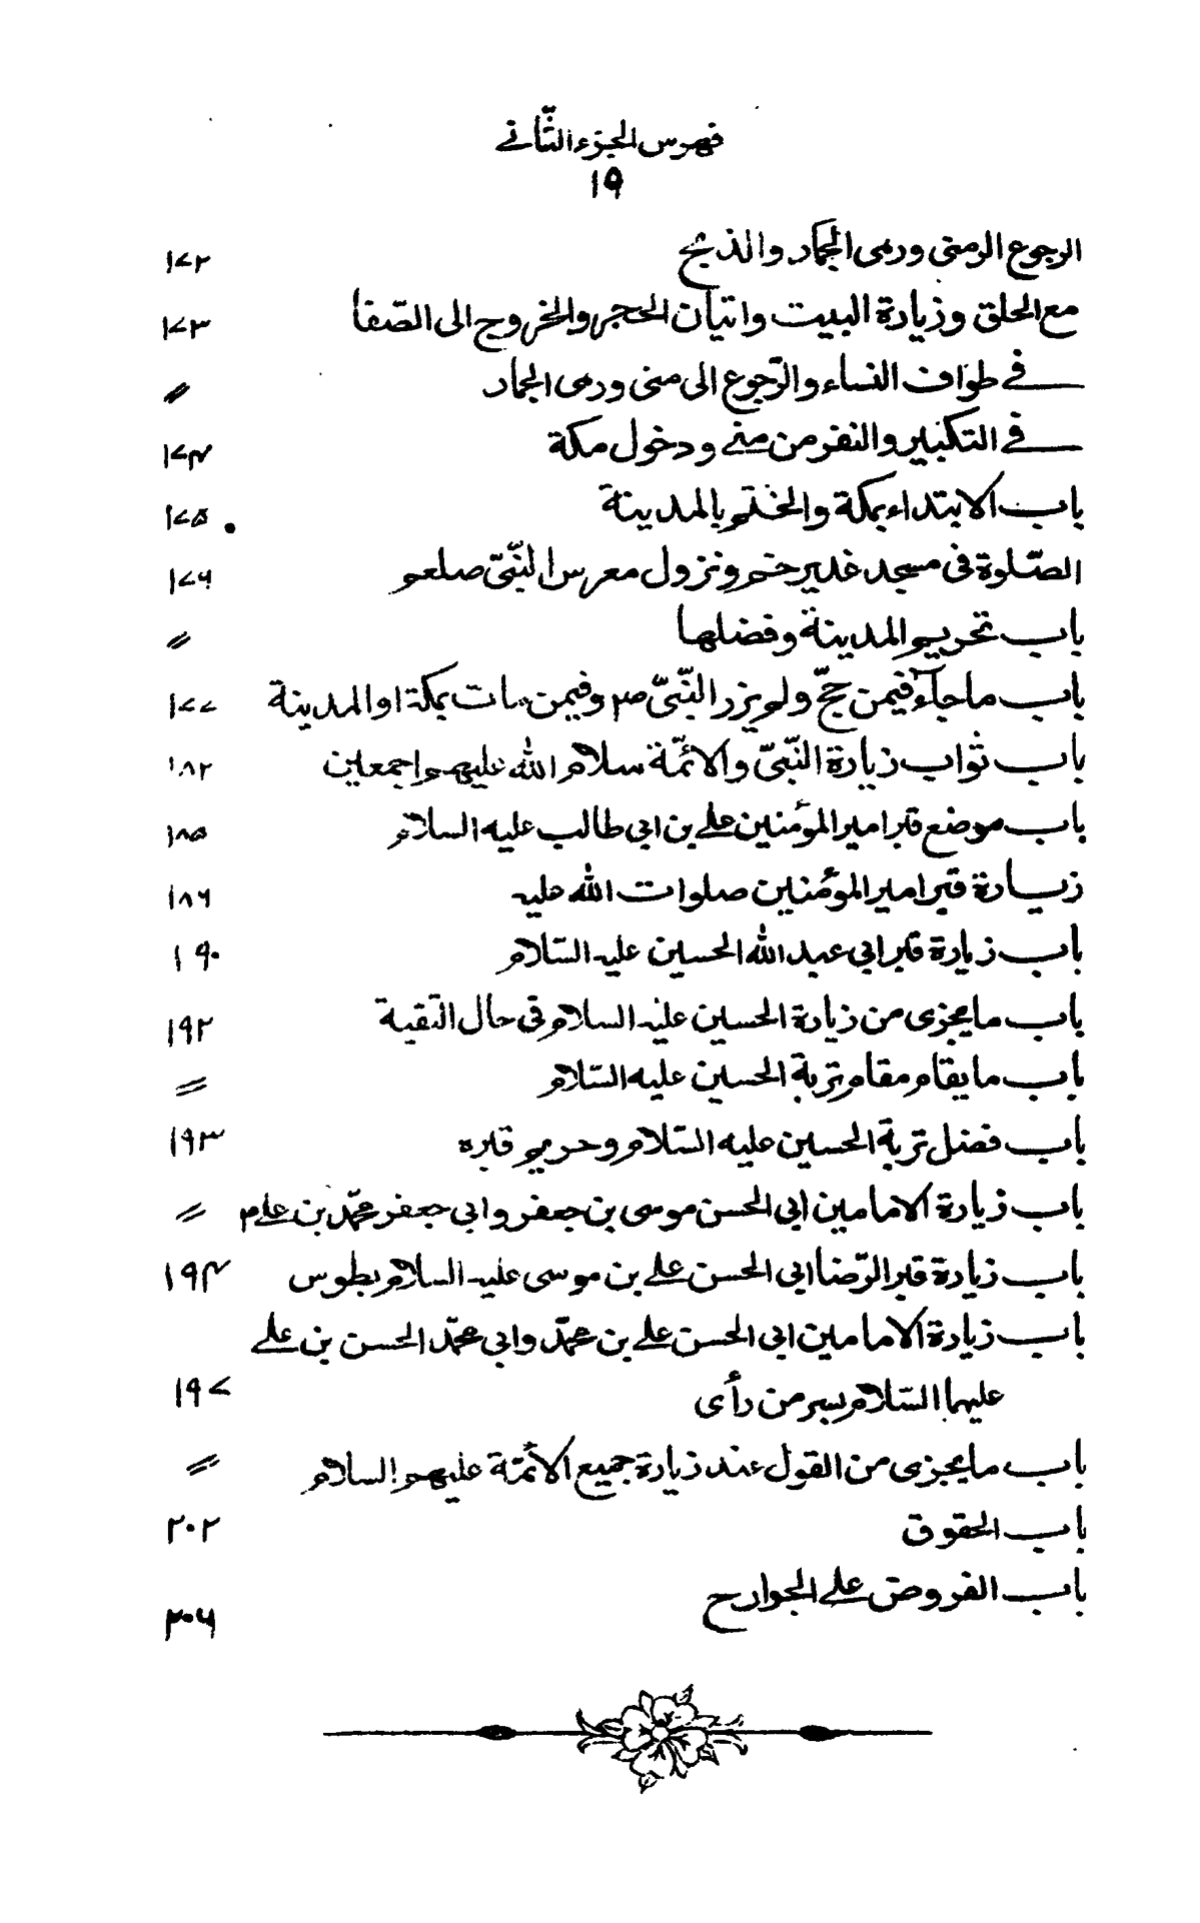 فهرس الجزء الثّاني
١٩
الرجوع الى منى ورمى الجمار والذبح ١٧٢
مع الحلق وزيارة البيت واتيان الحجر والخروج الى الصّفا ١٧٣
في طواف النساء والرّجوع الى منى ورمى الجمار 〃
في التكبير والنفر من منى ودخول مكة ١٧۴
باب الابتداء بمكة والختم بالمدينة ١٧۵
الصّلوة فى مسجد غدير خم ونزول معرس النّبىّ صلعم ١٧۶
باب تحريم المدينة وفضلها 〃
باب ماجآء فيمن حجّ ولم يزر النّبىّ صم وفيمن مات بمكة او المدينة ١٧٧
باب ثواب زيارة النّبىّ والائمّة سلام الله عليهم اجمعين ١٨٢
باب موضع قبر امير المؤمنين على بن ابى طالب عليه السلام ١٨۵
زيارة قبر امير المؤمنين صلوات الله عليه ١٨۶
باب زيارة قبر ابى عبد الله الحسين عليه السّلام ١٩٠
باب ما يجزى من زيارة الحسين عليه السلام فى حال التقية ١٩٢
باب ما يقام مقام تربة الحسين عليه السّلام 〃
باب فضل تربة الحسين عليه السّلام وحريم قبره ١٩٣
باب زيارة الامامين ابى الحسن موسى بن جعفر وابى جعفر محمّد بن على م 〃
باب زيارة قبر الرّضا ابى الحسن على بن موسى عليه السلام بطوس ١٩۴
باب زيارة الامامين ابى الحسن على بن محمّد وابى محمّد الحسن بن على
عليهما السّلام بسر من رأى ١٩٧
باب ما يجزى من القول عند زيارة جميع الأئمّة عليهم السلام 〃
باب الحقوق ٢٠٢
باب الفروض على الجوارح ٢٠۶